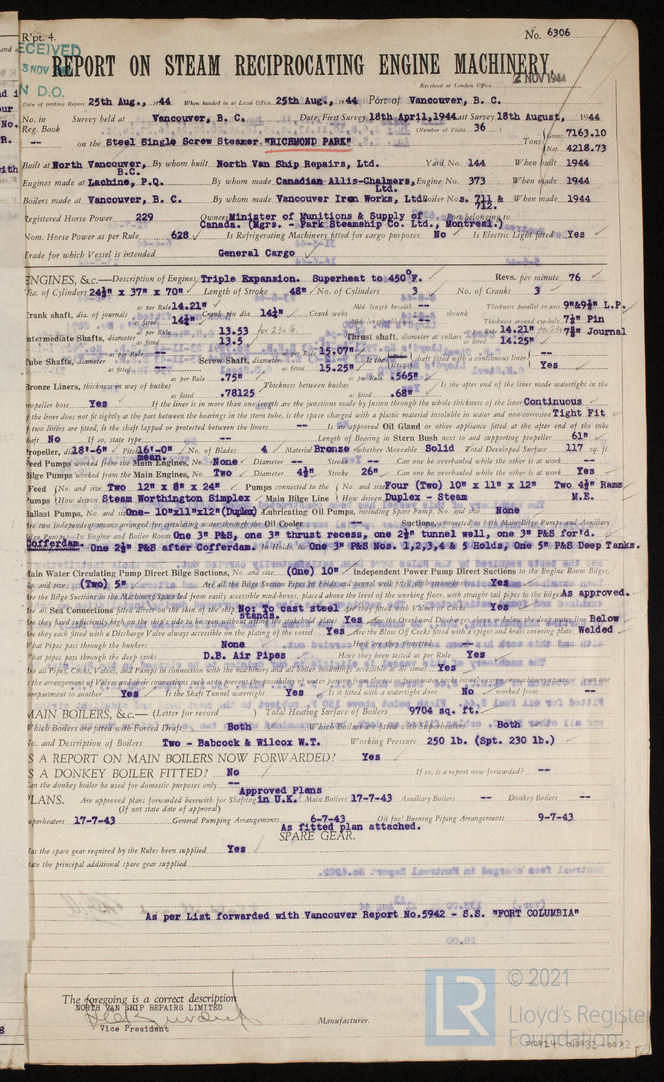 R'pt. 4.
No. 6306
RECEIVED
3 NOV 1944
N D.O.
REPORT ON STEAM RECIPROCATING ENGINE MACHINERY.
Received at London Office 2 NOV 1944
Date of writing Report 25th Aug., 1944 When handed in at Local Office 25th Aug., 44 Port of Vancouver, B. C.
No. in Survey held at Vancouver, B. C. Date, First Survey 18th April, 1944 Last Survey 18th August, 1944
Reg. Book (Number of Visits 36
-- on the Steel Single Screw Steamer "RICHMOND PARK" Tons Gross 7163.10
Net 4218.73
Built at North Vancouver, B.C. By whom built North Van Ship Repairs, Ltd. Yard No. 144 When built 1944
Engines made at Lachine, P.Q. By whom made Canadian Allis-Chalmers, Ltd. Engine No. 373 When made 1944
Boilers made at Vancouver, B. C. By whom made Vancouver Iron Works, Ltd. Boiler Nos. 711 & 712. When made 1944
Registered Horse Power 229 Owners Minister of Munitions & Supply of Canada. (Mgrs. - Park Steamship Co. Ltd., Montreal.) Port belonging to
Nom. Horse Power as per Rule 628 Is Refrigerating Machinery fitted for cargo purposes No Is Electric Light fitted Yes
Trade for which Vessel is intended General Cargo
ENGINES, &c.—Description of Engines Triple Expansion. Superheat to 450°F. Revs. per minute 76
Dia. of Cylinders 24½" x 37" x 70" Length of Stroke 48" No. of Cylinders 3 No. of Cranks 3
Crank shaft, dia. of journals as per Rule 14.21" as fitted 14¼" Crank pin dia. 14¼" Crank webs Mid. length breadth -- shrunk Thickness parallel to axis 9"&9½" L.P.
Thickness around eye-hole 7½" Pin
7⅞" Journal
Intermediate Shafts, diameter as per Rule 13.53 as fitted 13.5 Thrust shaft, diameter at collars as per Rule 14.21" as fitted 14.25"
Tube Shafts, diameter as per Rule -- as fitted -- Screw Shaft, diameter as per Rule 15.07" as fitted 15.25" Is the shaft fitted with a continuous liner -- Yes
Bronze Liners, thickness in way of bushes as per Rule .75" as fitted .78125 Thickness between bushes as per Rule .565" as fitted .68" Is the after end of the liner made watertight in the
propeller boss Yes If the liner is in more than one length are the junctions made by fusion through the whole thickness of the liner Continuous
If the liner does not fit tightly at the part between the bearings in the stern tube, is the space charged with a plastic material insoluble in water and non-corrosive Tight Fit
If two liners are fitted, is the shaft lapped or protected between the liners -- Is an approved Oil Gland or other appliance fitted at the after end of the tube
shaft No If so, state type -- Length of Bearing in Stern Bush next to and supporting propeller 61"
Propeller, dia. 18'-6" Pitch 16'-0" mean. No. of Blades 4 Material Bronze whether Moveable Solid Total Developed Surface 117 sq. ft.
Feed Pumps worked from the Main Engines, No. None Diameter -- Stroke -- Can one be overhauled while the other is at work --
Bilge Pumps worked from the Main Engines, No. Two Diameter 4½" Stroke 26" Can one be overhauled while the other is at work Yes
Feed Pumps No. and size Two 12" x 8" x 24" How driven Steam Worthington Simplex Pumps connected to the Main Bilge Line No. and size Four (Two) 10" x 11" x 12" Two 4½" Rams How driven Duplex - Steam M.E.
Ballast Pumps, No. and size One- 10"x11"x12"(Duplex) Lubricating Oil Pumps, including Spare Pump, No. and size None
Are two independent means arranged for circulating water through the Oil Cooler -- Suctions, connected to both Main Bilge Pumps and Auxiliary
Bilge Pumps—In Engine and Boiler Room One 3" P&S, one 3" thrust recess, one 2½" tunnel well, one 3" P&S for'd.
Cofferdam. One 2½" P&S after Cofferdam. In Holds, &c. One 3" P&S Nos. 1,2,3,4 & 5 Holds, One 5" P&S Deep Tanks.
Main Water Circulating Pump Direct Bilge Suctions, No. and size (One) 10" Independent Power Pump Direct Suctions to the Engine Room Bilges,
No. and size (Two) 5" Are all the Bilge Suction Pipes in holds and tunnel well fitted with strum-boxes Yes
Are the Bilge Suctions in the Machinery Space led from easily accessible mud-boxes, placed above the level of the working floor, with straight tail pipes to the bilges As approved.
Are all Sea Connections fitted direct on the skin of the ship No: To cast steel stands. Are they fitted with Valves or Cocks Yes
Are they fixed sufficiently high on the ship's side to be seen without lifting the stokehold plates Yes Are the Overhead Discharges above or below the deep water line Below
Are they each fitted with a Discharge Valve always accessible on the plating of the vessel Yes Are the Blow Off Cocks fitted with a spigot and brass covering plate Welded
What Pipes pass through the bunkers None How are they protected --
What pipes pass through the deep tanks D.B. Air Pipes Have they been tested as per Rule Yes
Are all Pipes, Cocks, Valves, and Pumps in connection with the machinery and all boiler mountings accessible at all times Yes
compartment to another Yes Is the Shaft Tunnel watertight Yes Is it fitted with a watertight door No worked from --
MAIN BOILERS, &c.— (Letter for record Total Heating Surface of Boilers 9704 sq. ft.
Which Boilers are fitted with Forced Draft Both Which Boilers are fitted with Superheaters Both
No. and Description of Boilers Two - Babcock & Wilcox W.T. Working Pressure 250 lb. (Spt. 230 lb.)
IS A REPORT ON MAIN BOILERS NOW FORWARDED? Yes
IS A DONKEY BOILER FITTED? No If so, is a report now forwarded? --
Can the donkey boiler be used for domestic purposes only --
PLANS. Are approved plans forwarded herewith for Shafting Approved Plans in U.K. Main Boilers 17-7-43 Auxiliary Boilers -- Donkey Boilers --
(If not state date of approval)
Superheaters 17-7-43 General Pumping Arrangements 6-7-43 Oil fuel Burning Piping Arrangements 9-7-43
As fitted plan attached.
SPARE GEAR.
Has the spare gear required by the Rules been supplied Yes
State the principal additional spare gear supplied
As per List forwarded with Vancouver Report No.5942 - S.S. "FORT COLUMBIA"
The foregoing is a correct description
NORTH VAN SHIP REPAIRS LIMITED
Vice President
Manufacturer.
LR
© 2021
Lloyd's Register
Foundation
010924-010932-0032